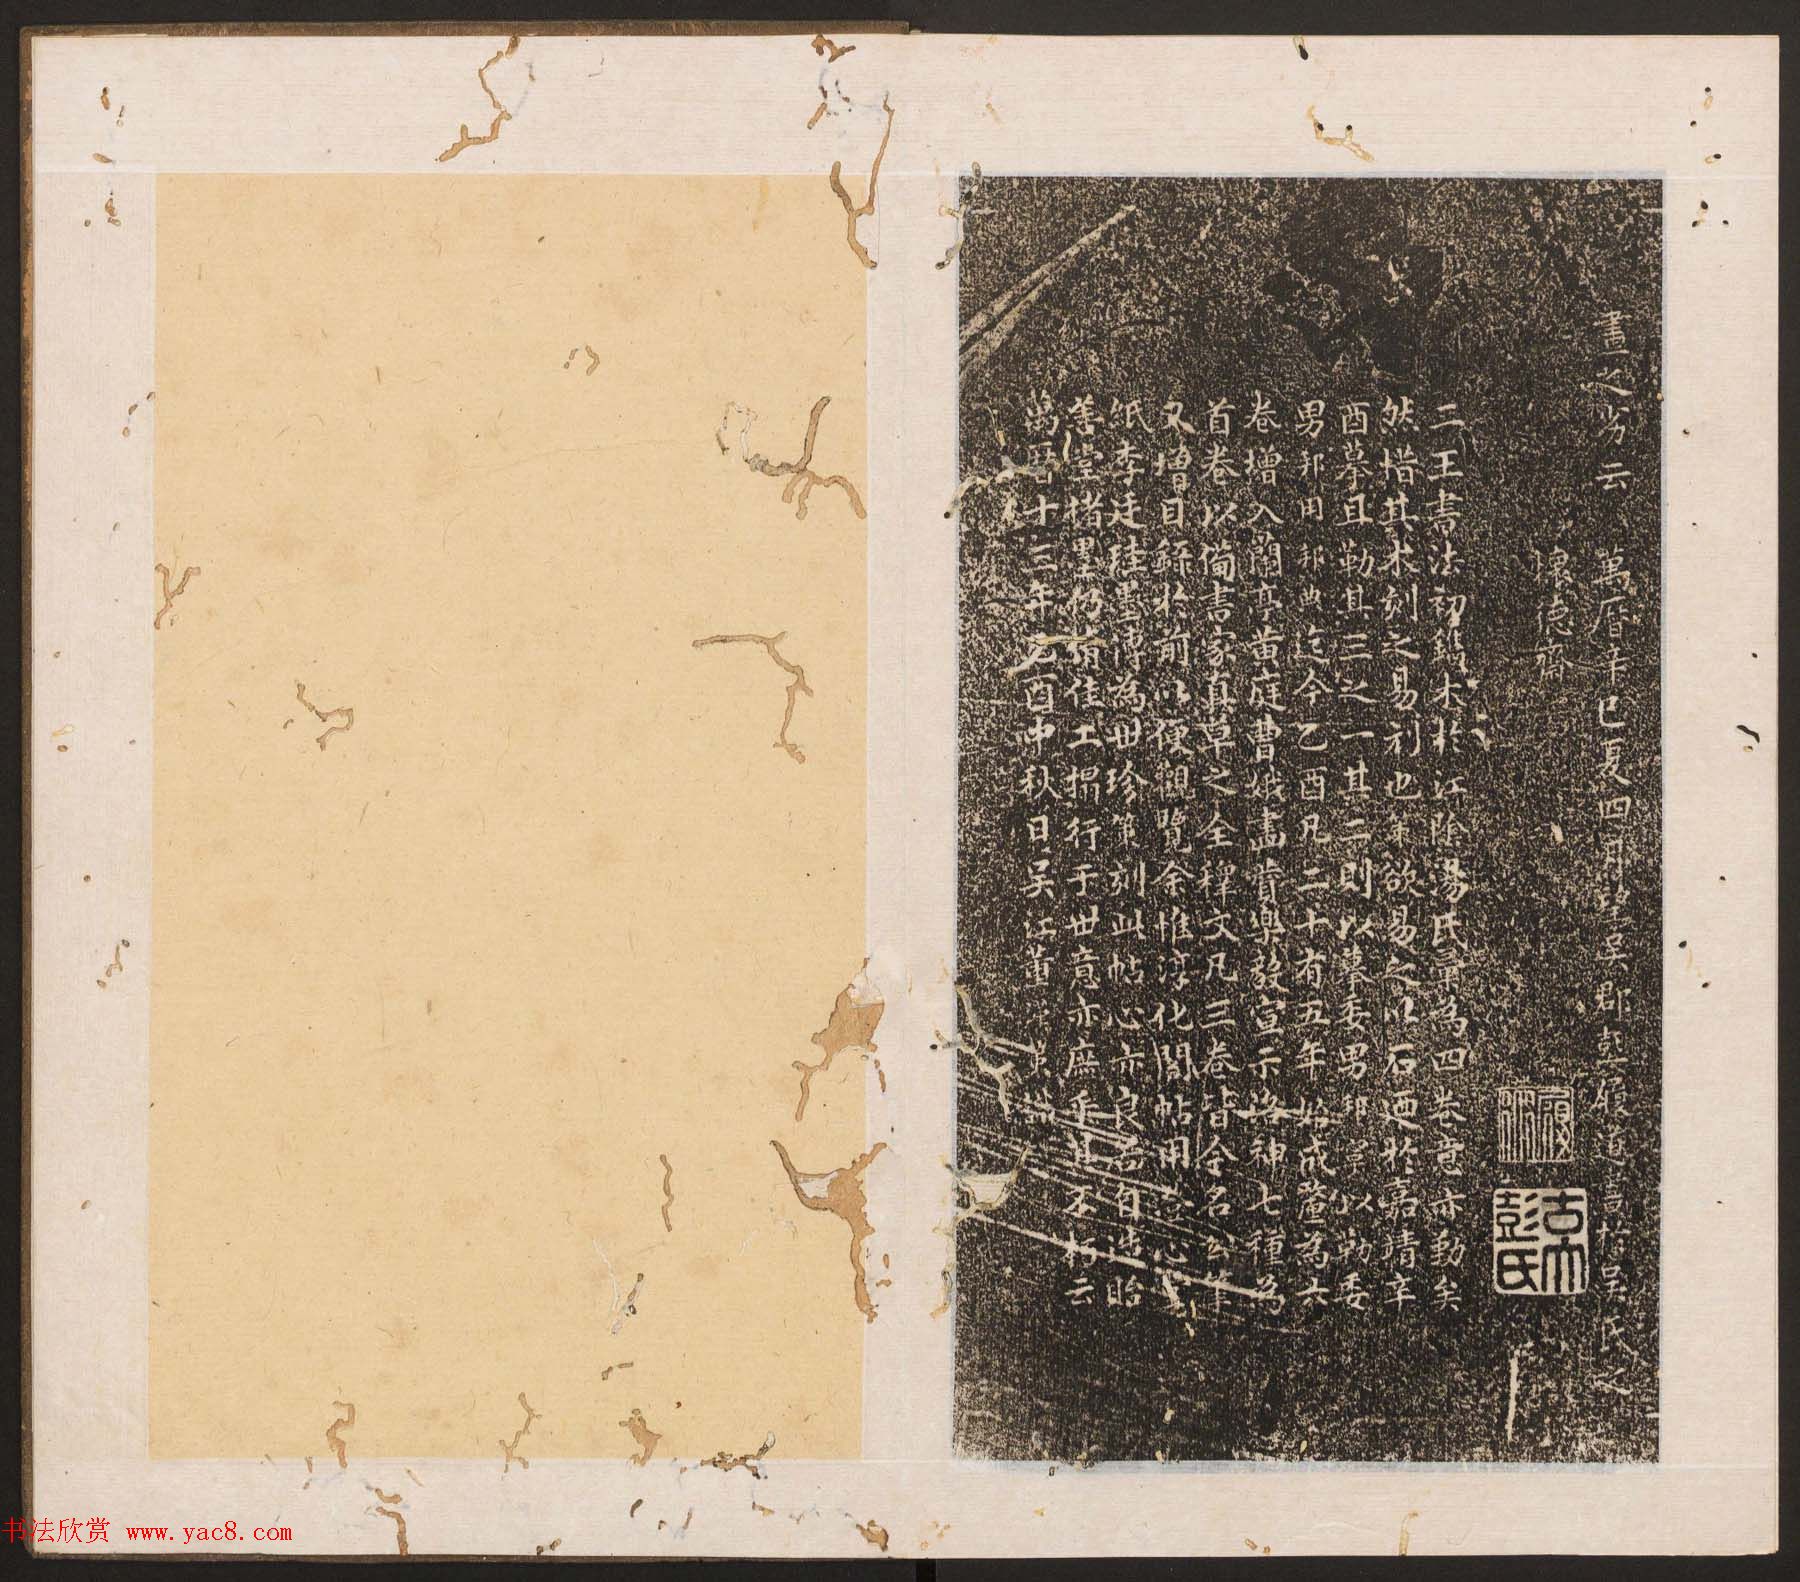 畫之旁云　萬曆辛巳夏四月望吳郡彭履道書於吳氏之
懷德齋
古大彭氏
二王書法初鋟木於江陰湯氏帚為四卷意亦勤矣
然惜其木刻之易刓也輒欲易之以石迺於嘉靖辛
酉摹且勒其三之一其二則以摹委男邦 以勒委
男邦用邦典迄今乙酉凡二十有五年始成釐為六
卷增入蘭亭黄庭曹娥畫贊樂毅宣示洛神七種為
首卷以備書家真草之全釋文凡三卷皆全名
又增目錄於前以便觀覽余惟淳化閣帖用澄心堂
紙李廷珪墨溥為世珍第刻此帖心亦良苦自當貽
善堂楮墨仍須佳工搨行于世意亦庶乎其不朽云
萬曆十三年乙酉中秋日吳江董
书法欣赏 www.yac8.com